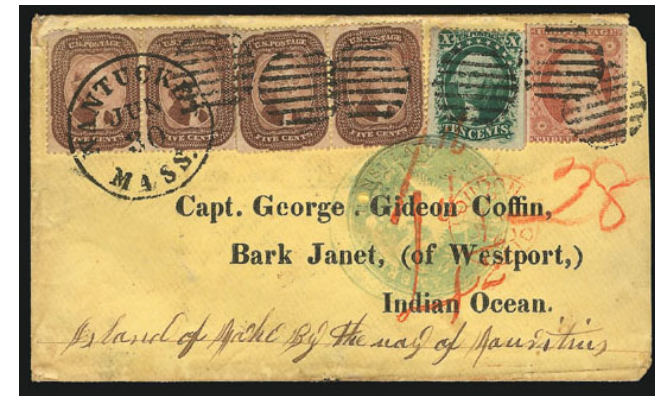 U.S. POSTAGE U.S. POSTAGE U.S. POSTAGE U.S. POSTAGE
FIVE CENTS FIVE CENTS FIVE CENTS FIVE CENTS
X X
TEN CENTS
NANTUCKET
JUN
30
MASS.
28
Capt. George . Gideon Coffin,
Bark Janet, (of Westport,)
Indian Ocean.
Island of Mahe By the way of Mauritius